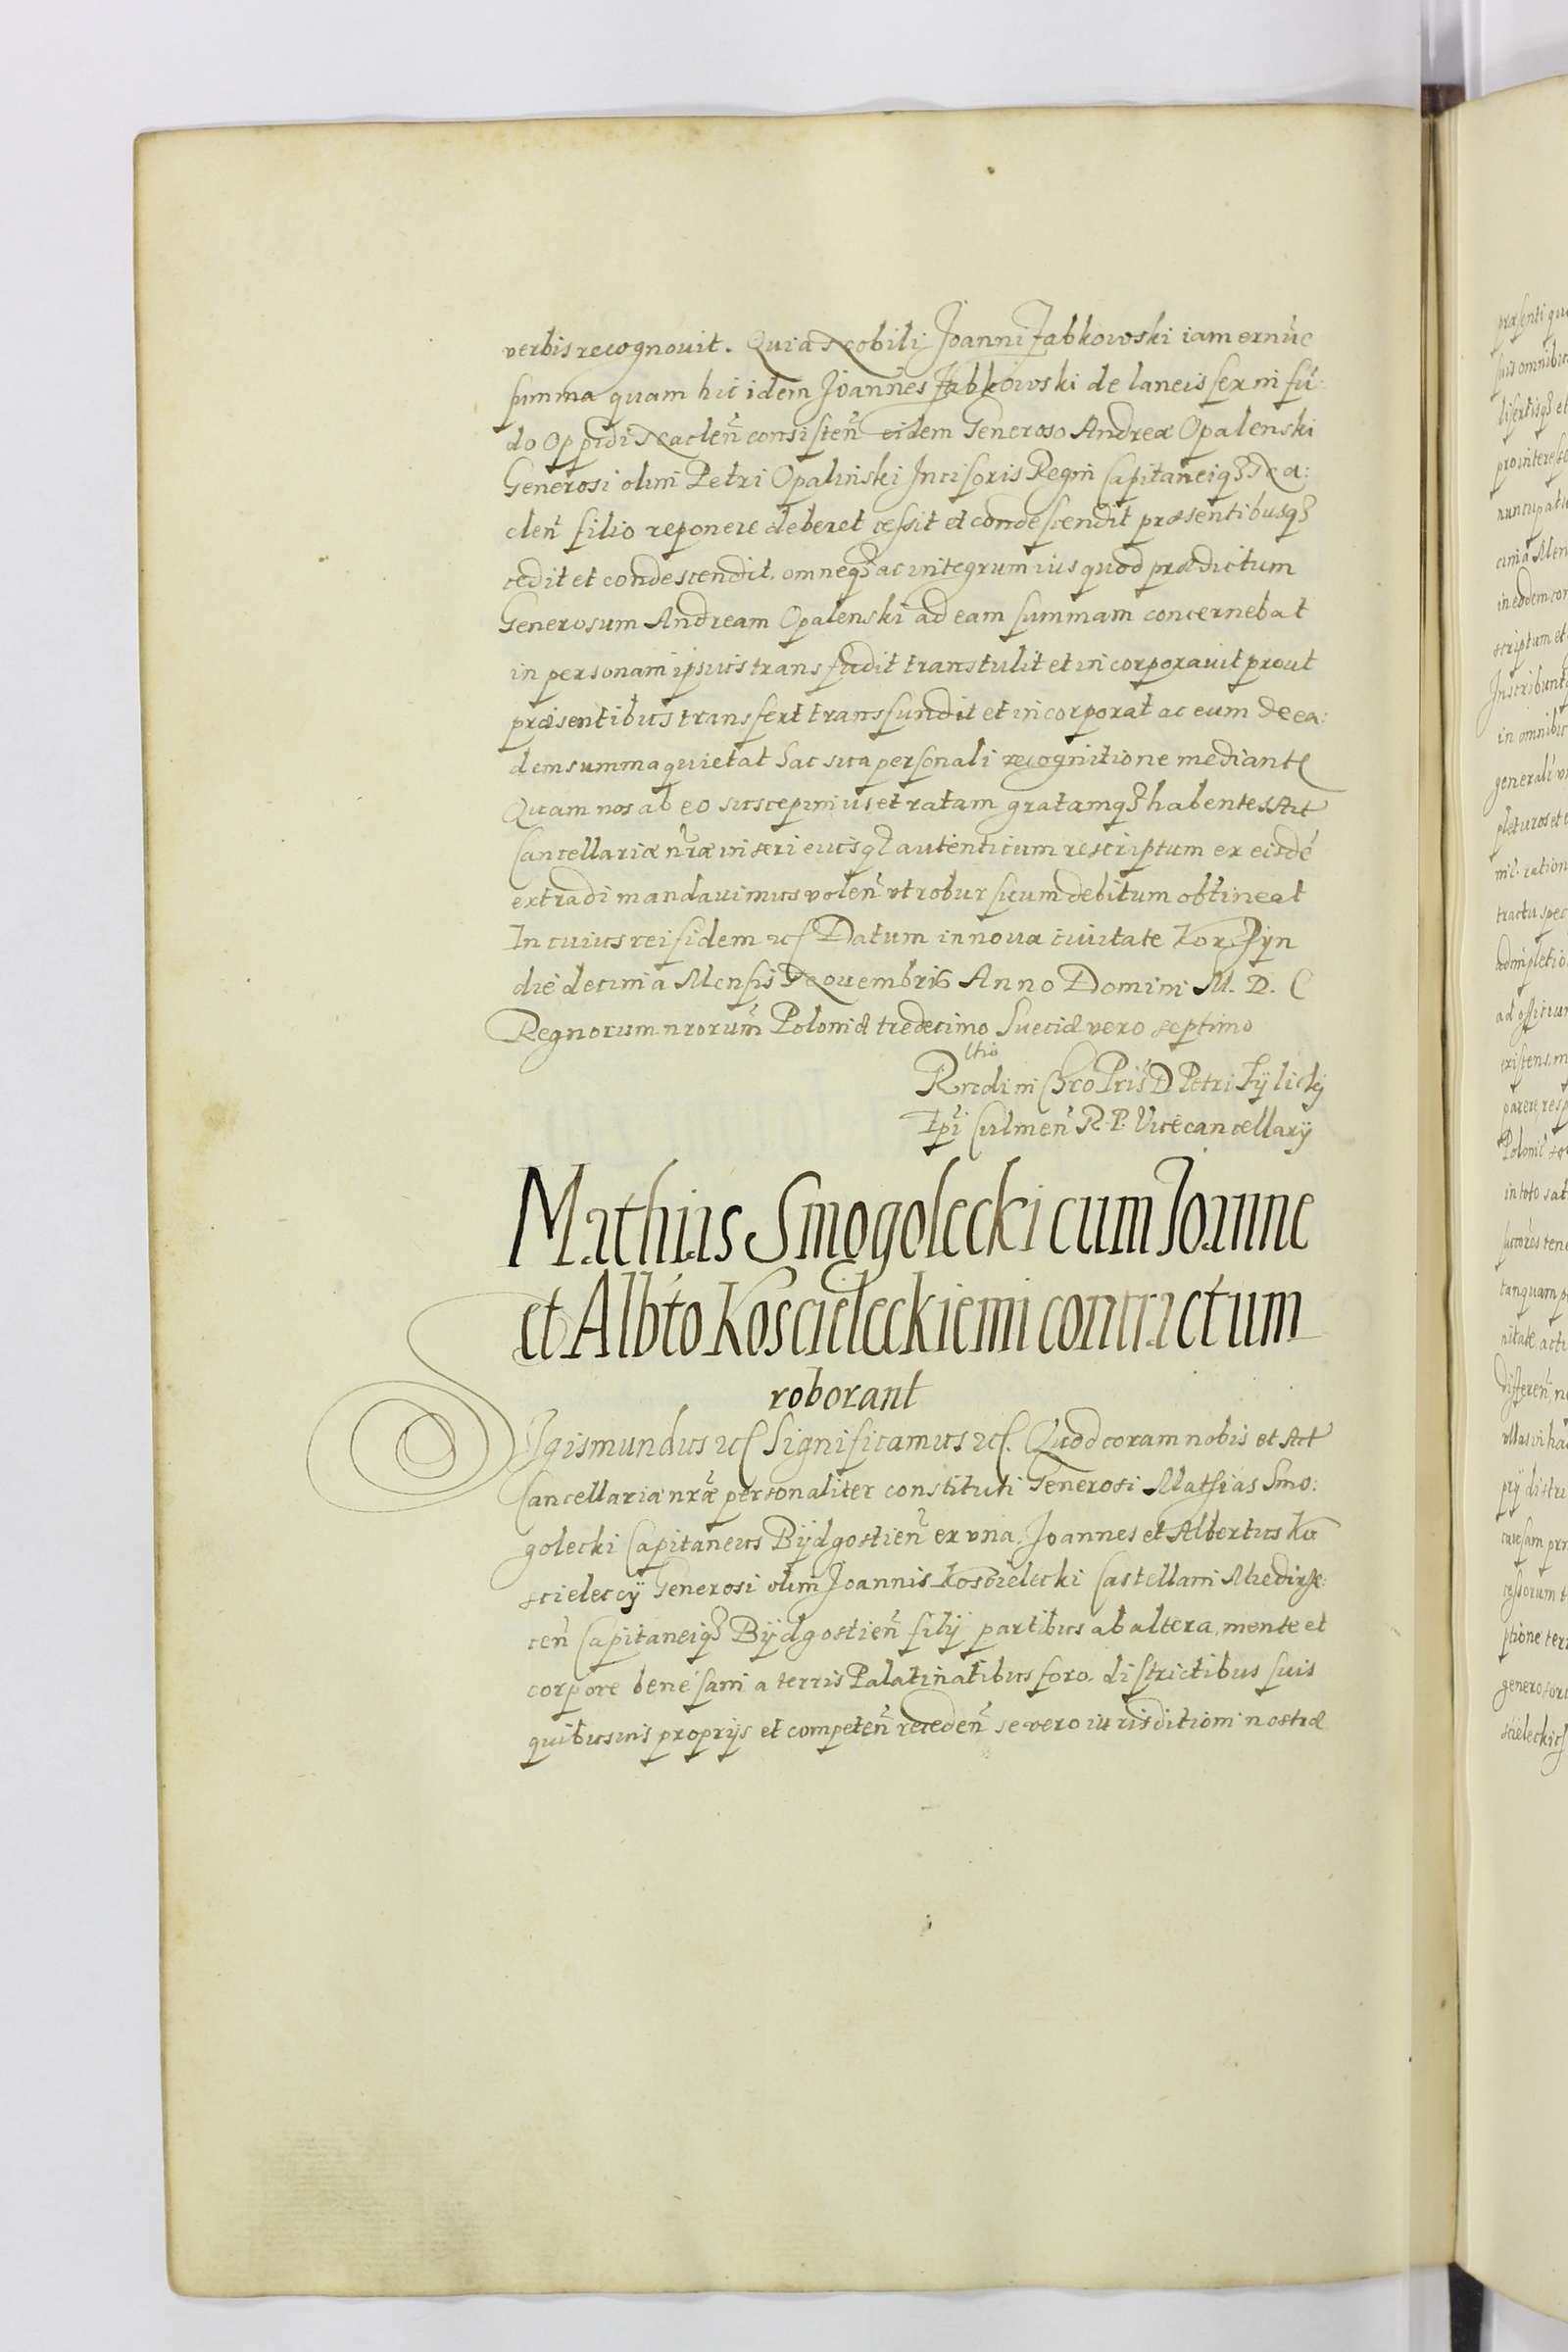 verbis recognouit. Quia Nobili Joanni Jabkowski iam ex nuc
summa quam hic idem Joannes Jabkowski de laneis sex in fu:
do Oppidi Naclen̄ consisten̄ eidem Generoso Andreæ Opalenski
Generosi olim Petri Opalinski Incisoris Regni Capitaneiq3 Na:
clen̄ filio reponere deberet cessit et condescendit præsentibusq3
cedit et condescendit, omneq3 ac integrum ius quod prædictum
Generosum Andream Opalenski ad eam summam concernebat
in personam ipsius transfudit transtulit et incorporauit prout
præsentibus transfert transfundit et incorporat ac eum de ea:
dem summa quietat hac sua personali recognitione mediante
Quam nos ab eo suscepimus et ratam gratamq3 habentes Act
Cancellariæ nr̄æ inseri eiusq3 autenticum rescriptum ex eisdē
extradi mandauimus volen̄ vt robur suum debitum obtineat
In cuius rei fidem etc Datum in noua ciuitate Korczyn
die decima Mensis Nouembris Anno Domini M. D. C
Regnorum nrorum̄ Poloniæ tredecimo Sueciæ vero septimo
Rn̄di in Chro Pris D Petri Tylicky
Epi Culmen̄ R. P. Vicecancellarij
Mathias Smogolecki cum Joanne
et Albto Koscieleckiemi contractum
roborant
Sigismundus etc Significamus etc. Quod coram nobis et Act
Cancellariæ nræ personaliter constituti Generosi Mathias Smo:
golecki Capitaneus Bydgostien̄ ex vna. Joannes et Albertus Ko
scieleccy Generosi olim Joannis Koscielecki Castellani Miedirze:
cen̄ Capitaneiq3 Bydgostien̄ filij partibus ab altera, mente et
corpore bene sani a terris Palatinatibus foro. districtibus suis
quibusuis proprijs et competen̄ receden̄ se vero iurisditioni nostræ